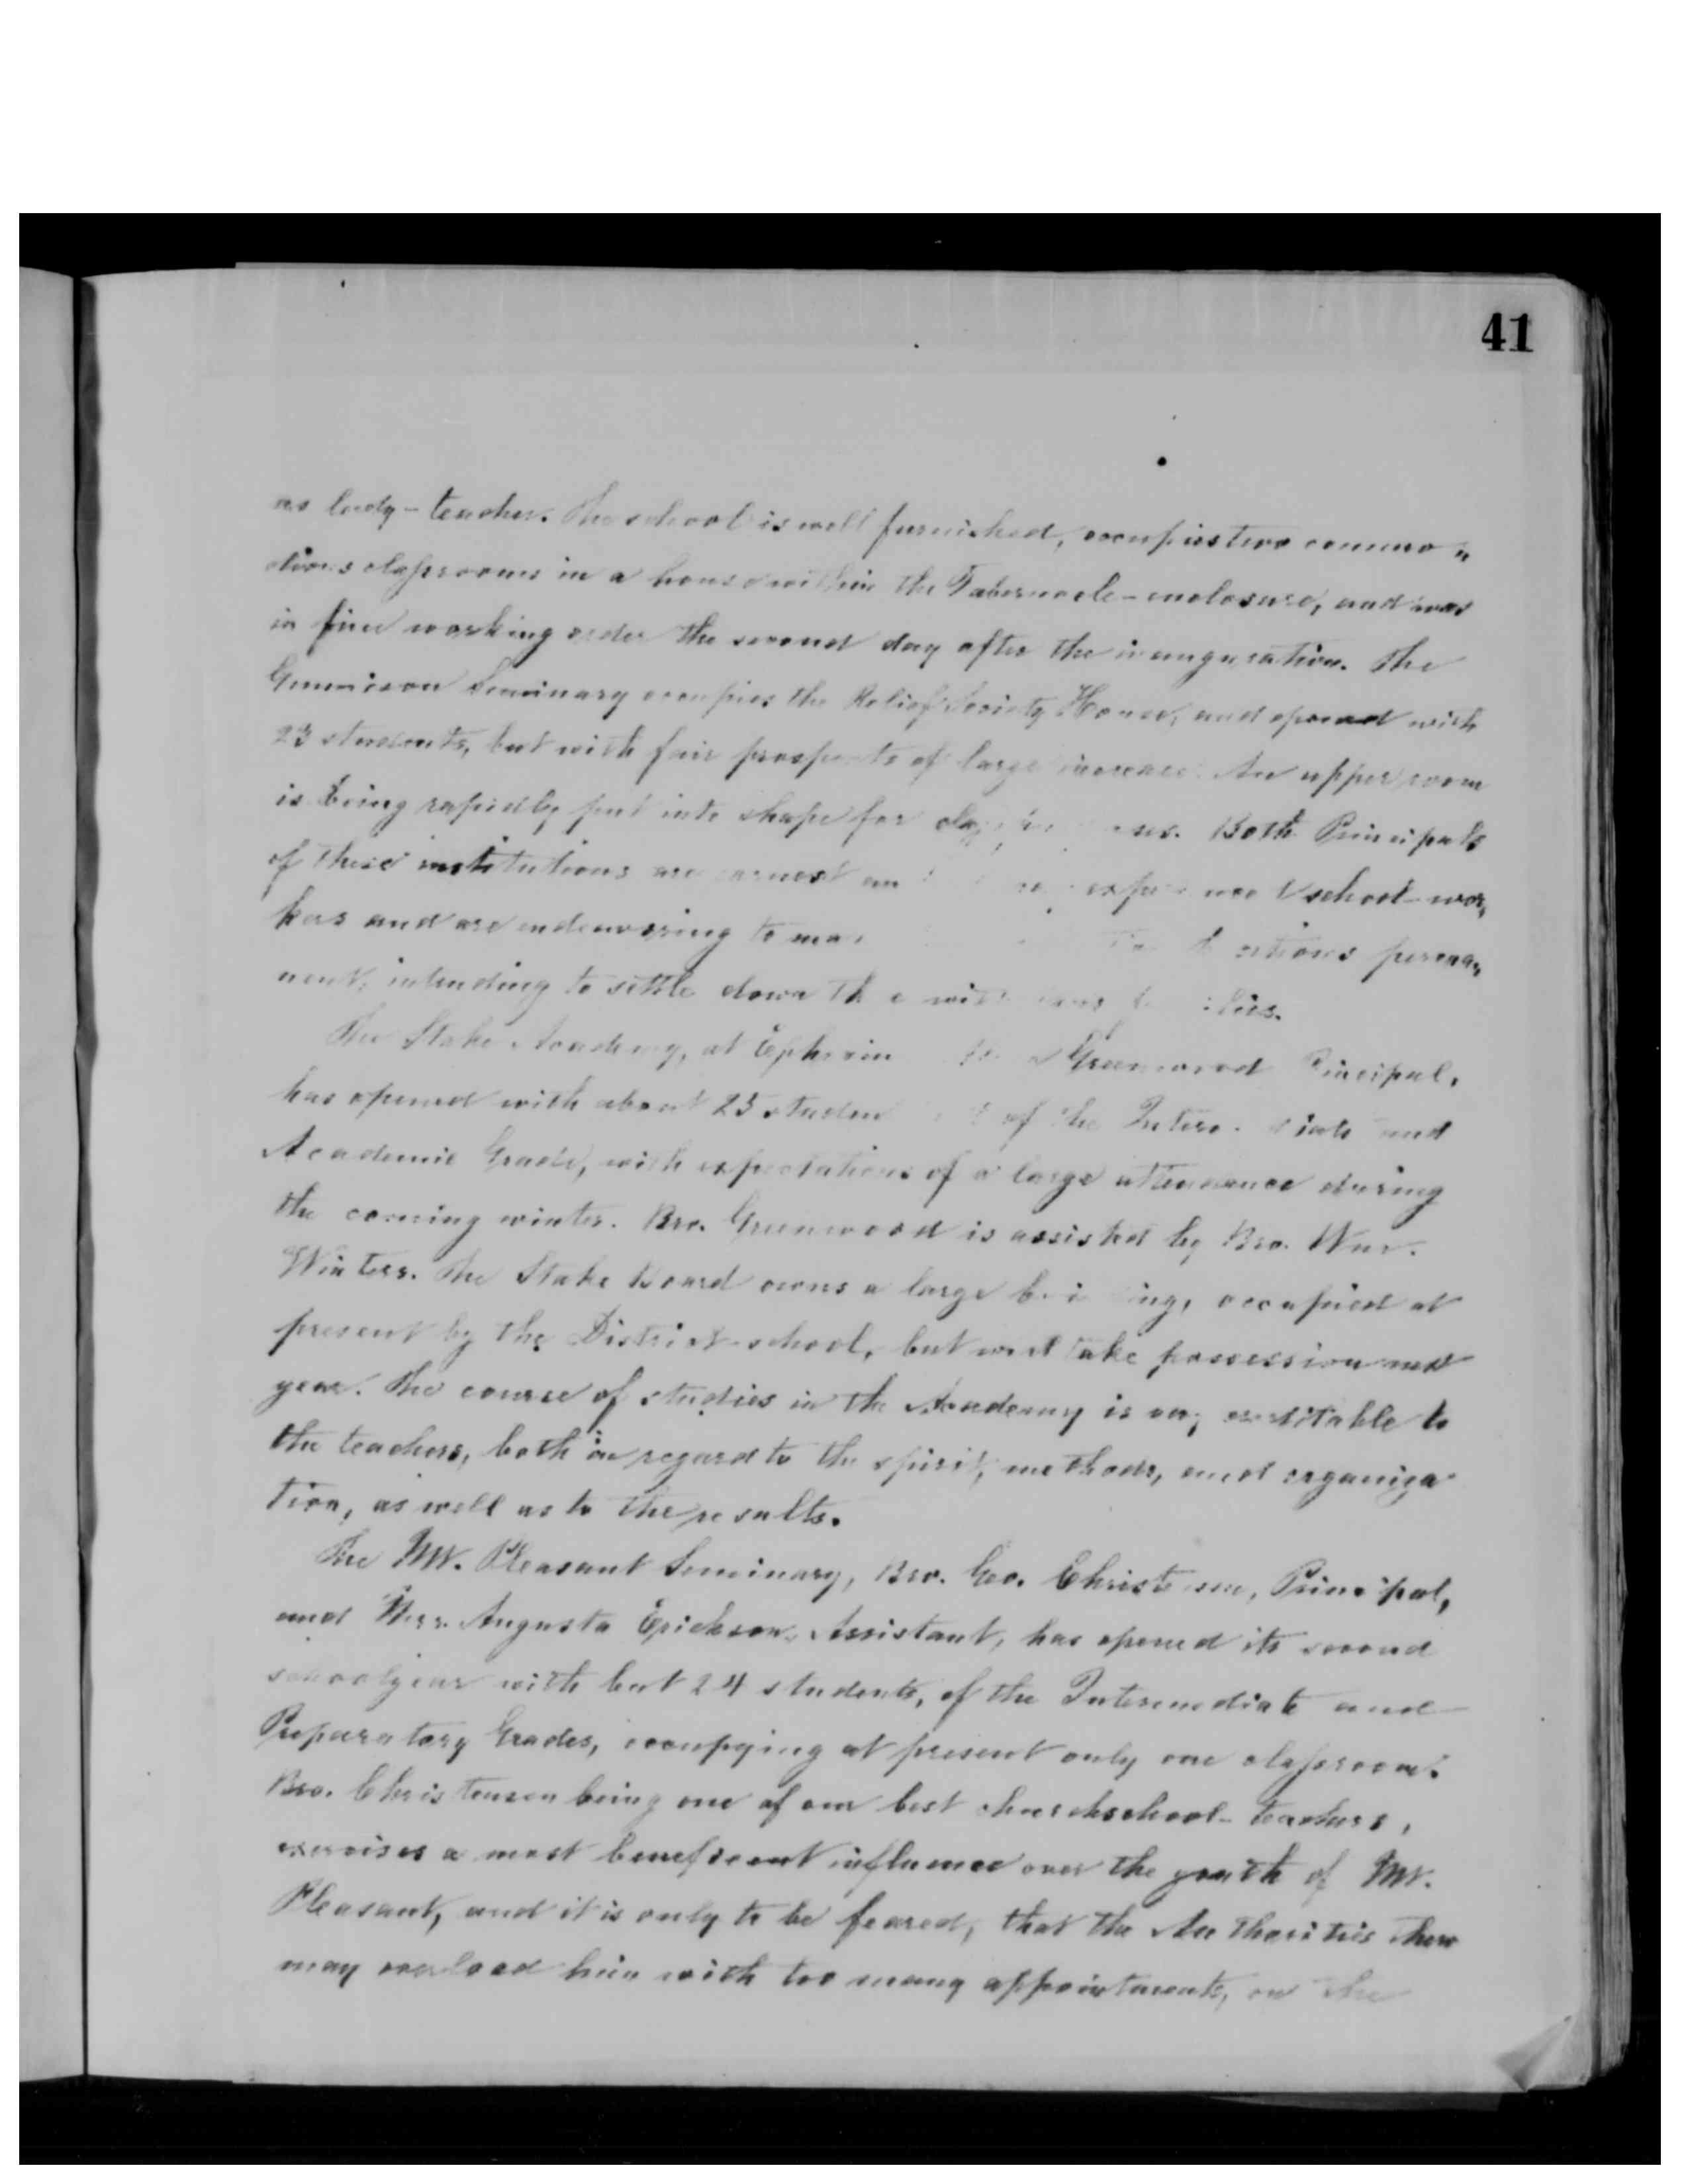 41
as lady-teacher. The school is well furnished, occupies two commo„
dious classrooms in a house within the Tabernacle-enclosure, and was
in fine working order the second day after the inauguration. The
Gunnison Seminary occupies the Relief Society House, and opened with
23 students, but with fair prospects of large increase. An upper room
is being rapidly put into shape for Both Principals
of these institutions are earnest school-wor„
kers and are endeavoring to perma„
nent, intending to settle down
The Stake Academy, at Ephraim Greenwood Principal,
has opened with about 25 of the and
Academic Grade, with expectations of a large attendance during
the coming winter. Bro. Greenwood is assisted by Bro. Wm.
Winters. The Stake Board owns a large occupied at
present by the District-school, but will take possession next
year. The course of studies in the Academy is creditable to
the teachers, both in regard to the spirit, methods, and organiza
tion, as well as to the results.
The Mt. Pleasant Seminary, Bro. Geo. Christensen, Principal,
and Augusta Erickson, Assistant, has opened its second
schoolyear with but 24 students, of the Intermediate and
Preparatory Grades, occupying at present only one classroom.
Bro. Christensen being one of our best churchschool-teachers,
exercises a most beneficent influence over the youth of Mt.
Pleasant, and it is only to be feared, that the Authorities there
may overload him with too many appointments, on the